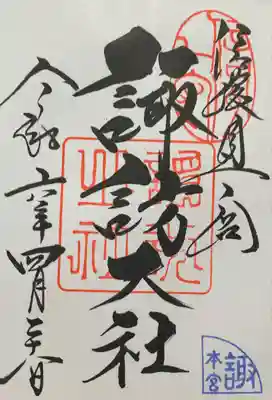 信濃國一宮
諏訪大社
令和六年四月二十八日
諏
本宮